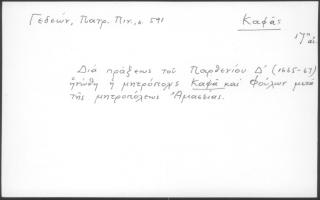 Γεδεών, Πατρ. Πιν., σ. 591
Καφᾶς
17ος αἰ.
Διά πράξεως τοῦ Παρθενίου Δ' (1665-67)
ἡνώθη ἡ μητρόπολις Καφᾶ καί Φούλων μετά
τῆς μητροπόλεως Ἀμασείας.